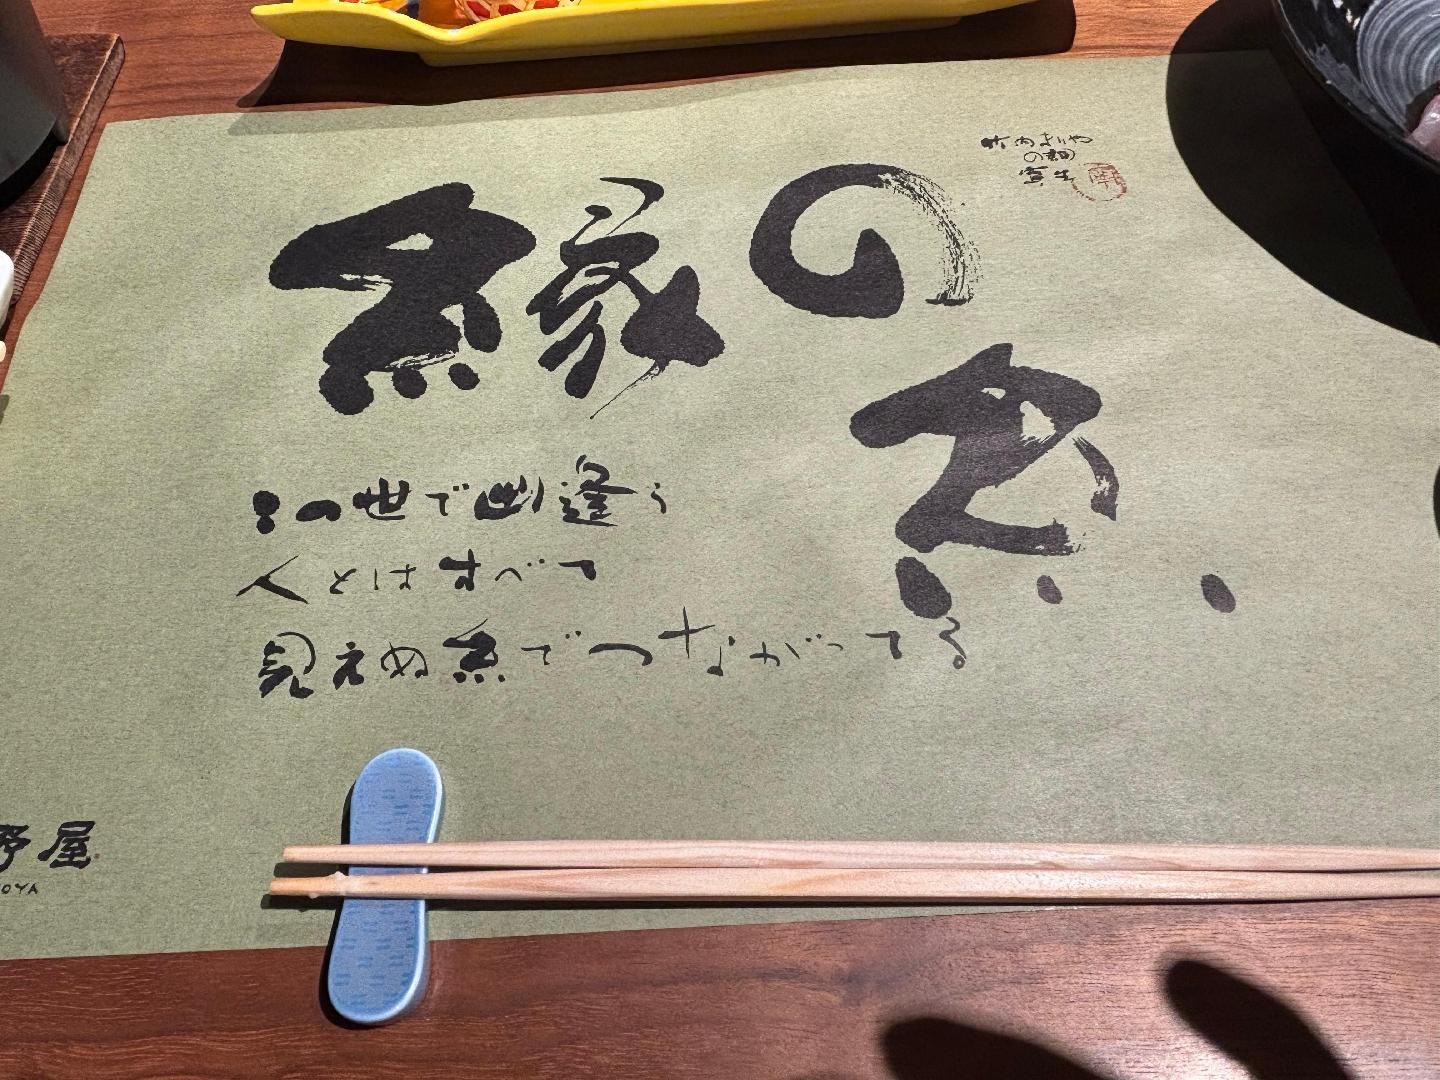 縁の
糸
この世で出逢う
人とはすべて
見えぬ糸でつながってる
野屋
OYA